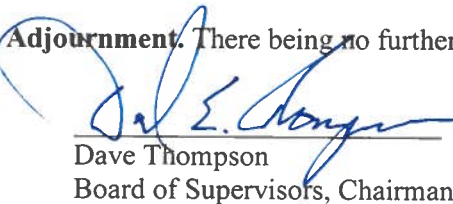 Adjournment. There being no further
Dave Thompson
Board of Supervisors, Chairman